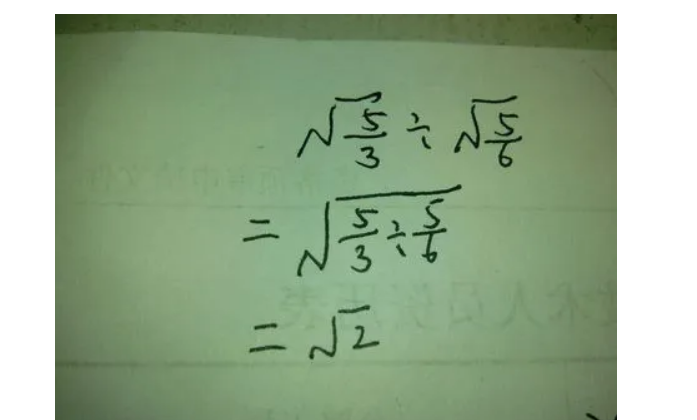 √5/3 ÷ √5/6
= √5/3 ÷ 5/6
= √2